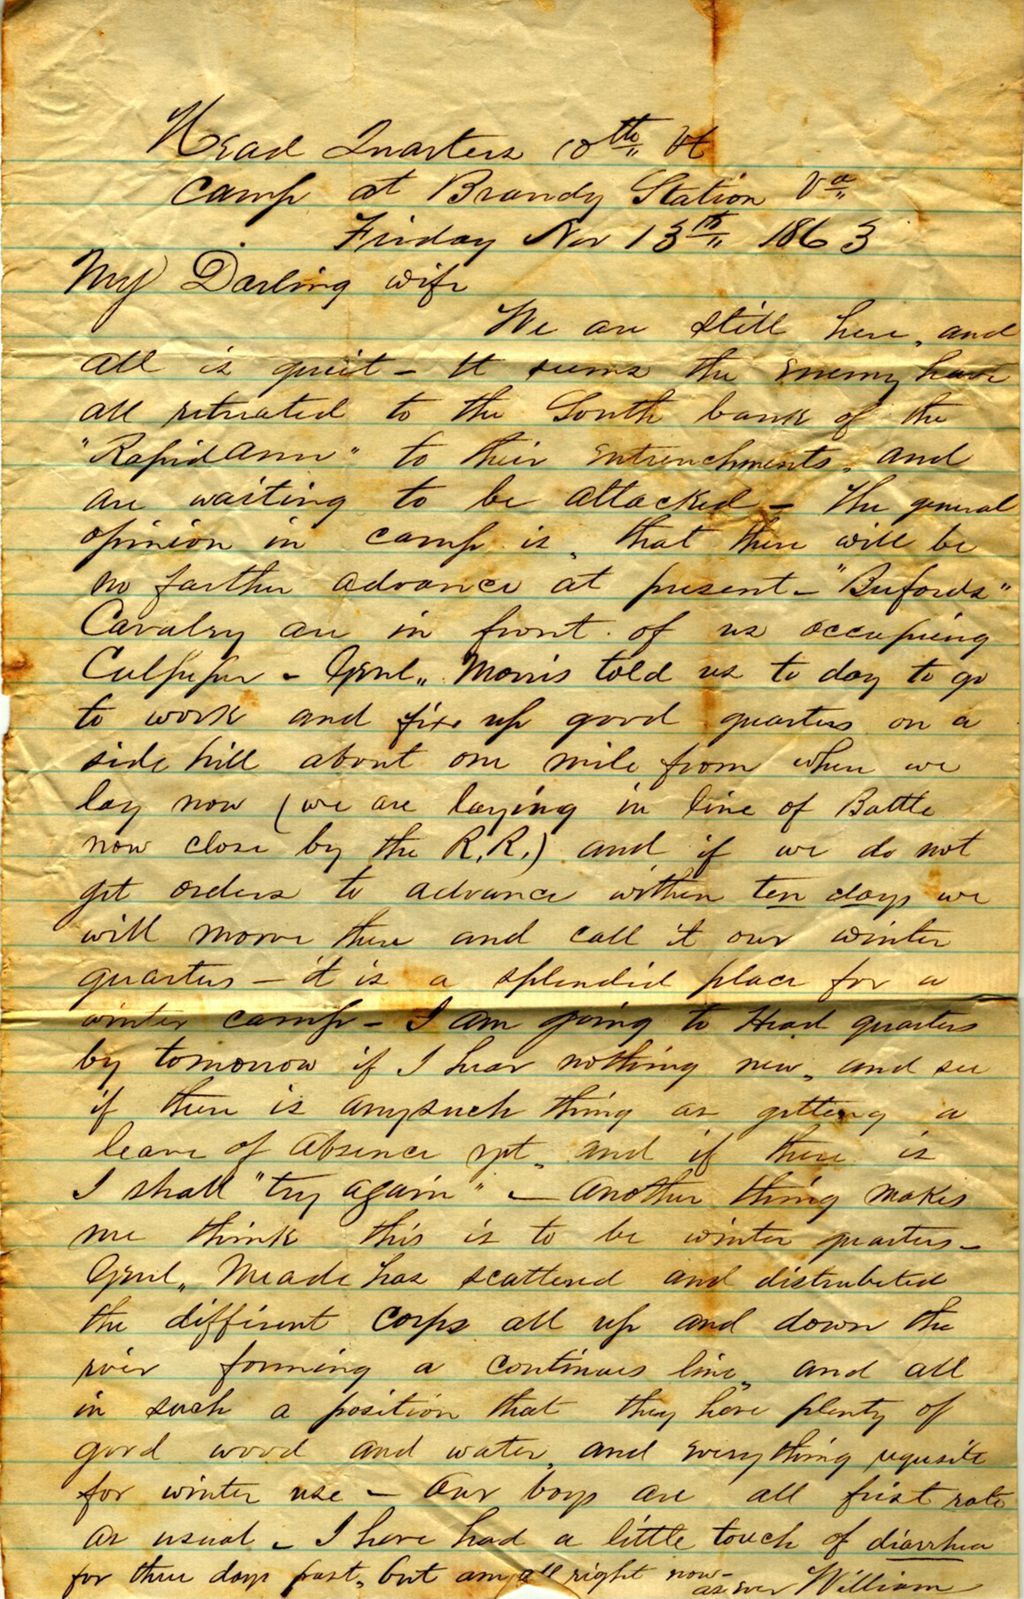 Head Quarters 10th Vt
Camp at Brandy Station Va
Friday Nov 13th 1863
My Darling wife
We are still here, and
all is quiet - It seems the enemy have
all retreated to the South bank of the
"Rapid Ann" to their entrenchments, and
are waiting to be attacked - The general
opinion in camp is, that there will be
no farther advance at present - "Bufords"
Cavalry are in front of us occupying
Culpeper - Genl,, Morris told us to day to go
to work and fix up good quarters on a
side hill about one mile from where we
lay now (we are laying in line of Battle
now close by the R.R.) and if we do not
get orders to advance within ten days we
will move there and call it our winter
quarters - it is a splendid place for a
winter camp - I am going to Head quarters
by tomorrow if I hear nothing new, and see
if there is any such thing as getting a
leave of absence yet, and if there is
I shall "try again" - Another thing makes
me think this is to be winter quarters -
Genl,, Meade has scattered and distributed
the different corps all up and down the
river forming a continues line, and all
in such a position that they have plenty of
good wood and water, and everything requsite
for winter use - Our boys are all first rate
as usual - I have had a little touch of diarrhea
for three days past, but am all right now -
as ever William